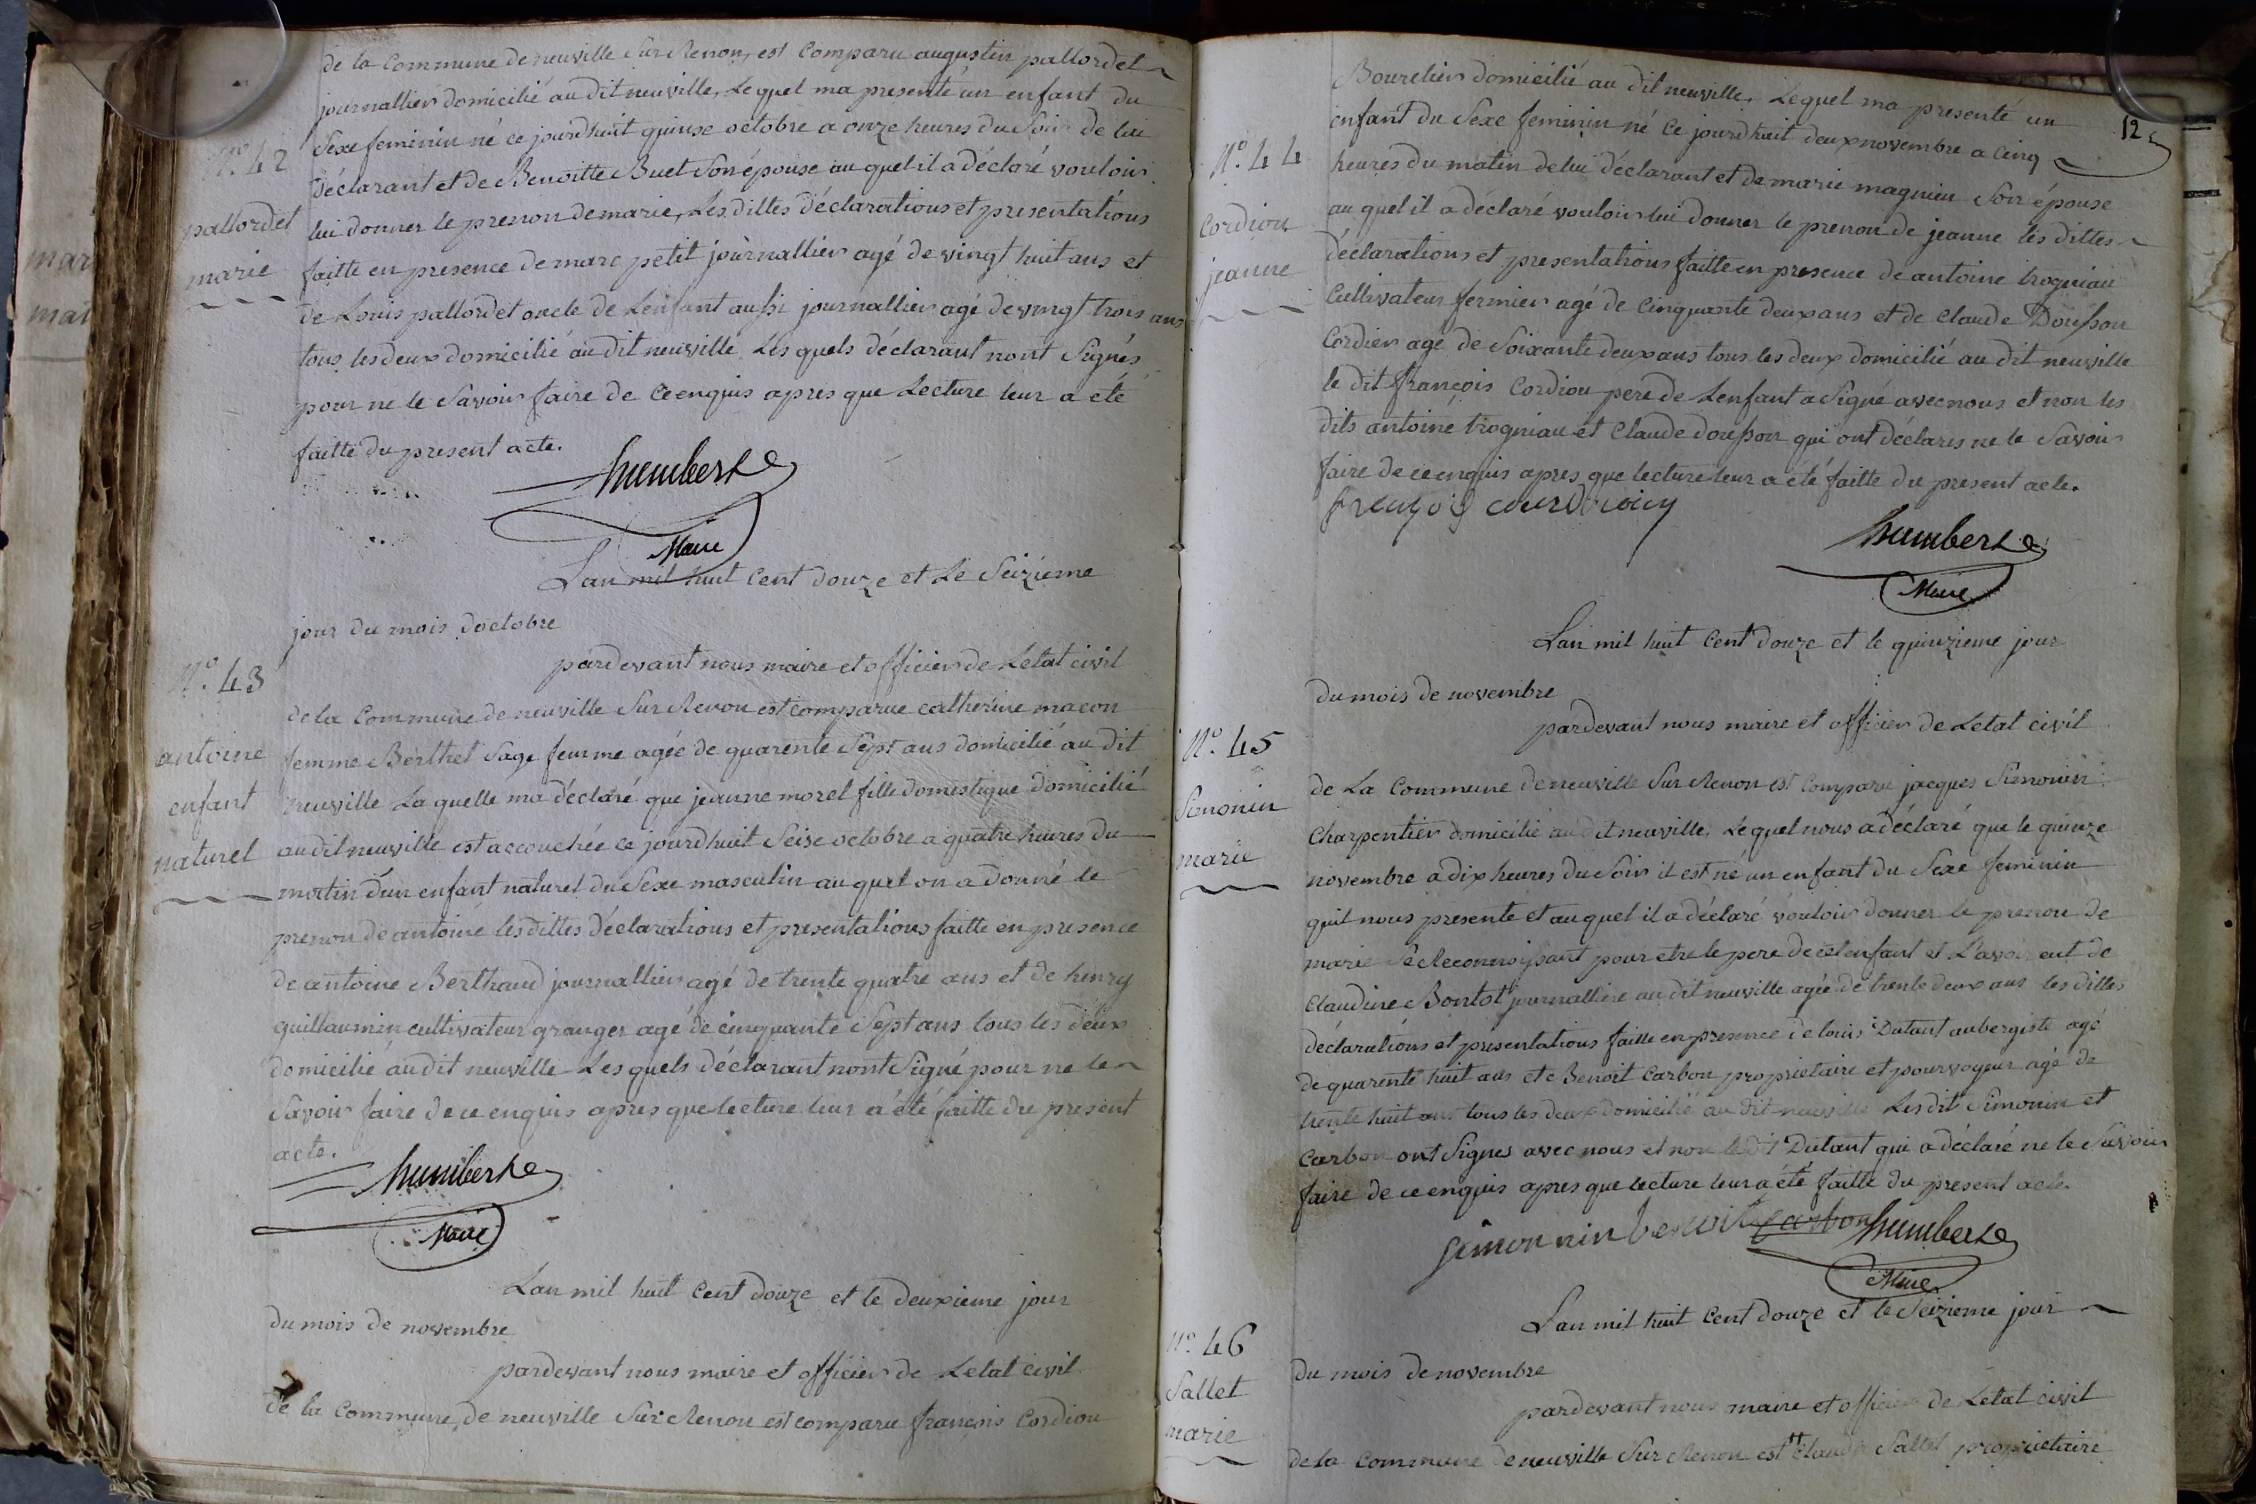 de la Commune de neuville Sur Renon, est Comparu augustin pallordet
journallier domicilié au dit neuville, Lequel ma presenté un enfant du
Sexe feminin né ce jourdhuit quinse octobre a onze heures du Soir de lui
N.° 42
déclarant et de Benoitte Buet Son épouse au quel il a déclaré vouloir
pallordet
lui donner le prenon de marie, Les dittes déclarations et presentations
marie
faitte en presence de marc petit journallier agé de vingt huit ans et
de Louis pallordet oncle de Lenfant aussi journallier agé de vingt trois ans
tous les deux domicilié au dit neuville Les quels déclarant nont Signés
pour ne le Savoir faire de ce enquis apres que Lecture leur a été
faitte du present acte.
humbert
Maire
Lan mil huit Cent douze et Le Seizieme
jour du mois doctobre
pardevant nous maire et officier de Letat civil
N.° 43
de la Commune de neuville Sur Renon est comparue catherine macon
antoine
femme Berthet Sage femme agée de quarente Sept ans domicilié au dit
enfant
neuville La quelle ma déclaré que jeanne morel fille domestique domicilié
naturel
au dit neuville est accouchée ce jourdhuit Seise octobre a quatre heures du
matin dun enfant naturel du Sexe masculin au quel on a donné le
prenon de antoine les dittes déclarations et presentations faitte en presence
de antoine Berthaud journallier agé de trente quatre ans et de henry
guillaumin cultivateur granger agé de cinquante Sept ans tous les deux
domicilié au dit neuville Les quels déclarant nont Signé pour ne le
Savoir faire de ce enquis apres que lecture leur a été faitte du present
acte.
humbert
Maire
Lan mil huit Cent douze et le deuxieme jour
du mois de novembre
pardevant nous maire et officier de Letat civil
de la Commune de neuville Sur Renon est comparu francois Cordiou
12
Bourelier domicilié au dit neuville, Lequel ma presenté un
enfant du Sexe feminin né Ce jourdhuit deux novembre a Cinq
N.° 44
heures du matin de lui déclarant et de marie magnien Son épouse
Cordiou
au quel il a déclaré vouloir lui donner le prenon de jeanne les dittes
jeanne
déclarations et presentations faitte en presence de antoine trogniau
Cultivateur fermier agé de Cinquante deux ans et de Claude Dousson
Cordier agé de Soixante deux ans tous les deux domicilié au dit neuville
le dit françois Cordiou pere de Lenfant a Signé avec nous et non les
dits antoine trogniau et Claude dousson qui ont déclarés ne le Savoir
faire de ce enquis apres que lecture leur a été faitte du present acte.
humbert
Maire
Lan mil huit Cent douze et le quinzieme jour
du mois de novembre
pardevant nous maire et officier de Letat civil
N.° 45
de La Commune de neuville Sur Renon est Comparu jacques Simonin
Simonin
Charpentier domicilié au dit neuville, Lequel nous a déclaré que le quinze
marie
novembre a dix heures du Soir il est né un enfant du Sexe feminin
quil nous presente et au quel il a déclaré vouloir donner le prenon de
marie Se Reconnoisant pour etre le pere de cet enfant et L'avoir eut de
Claudine Bontot journalliere au dit neuville agée de trente deux ans les dittes
déclarations et presentations faitte en presence de louis Dutant aubergiste agé
de quarente huit ans et Benoit Carbon proprietaire et pourvoyeur agé de
trente huit ans tous les deux domicilié au dit neuville Les dit Simonin et
Carbon ont Signes avec nous et non le dit Dutant qui a déclaré ne le Savoir
faire de ce enquis apres que lecture leur a été faitte du present acte.
simonnin benoit carbon humbert
Maire
Lan mil huit Cent douze et le Seizieme jour
N.° 46
du mois de novembre
Sallet
pardevant nous maire et officier de Letat civil
marie
de la Commune de neuville Sur Renon est Claude Sallet proprietaire